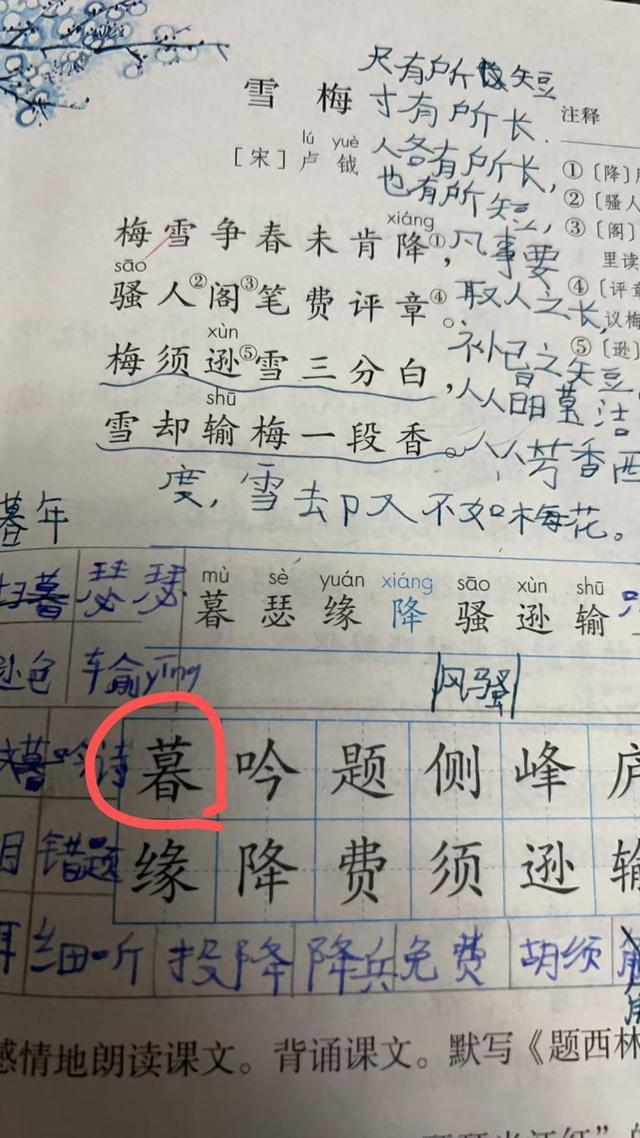 雪 梅
尺有所长短
寸有所长.
注释
lú yuè
[宋] 卢 钺
人各有所长,
也有所短,
①〔降〕
②〔骚人
③〔阁〕
里读
④〔评章
议梅
⑤〔逊〕
xiáng
梅雪争春未肯降①,
凡事要
sāo
骚人②阁③笔费评章④。
取人之长,
xùn
梅须逊⑤雪三分白,
补己之短。
shū
雪却输梅一段香。
人人
洁
人人芳香
度,雪去却又不如梅花。
暮年
mù sè yuán xiáng sāo xùn shū
暮 瑟 缘 降 骚 逊 输
瑟瑟
色 输yīng
风骚
吟诗
暮 吟 题 侧 峰 庐
错题
缘 降 费 须 逊 输
细听 投降 降兵 免费 胡须
感情地朗读课文。背诵课文。默写《题西林